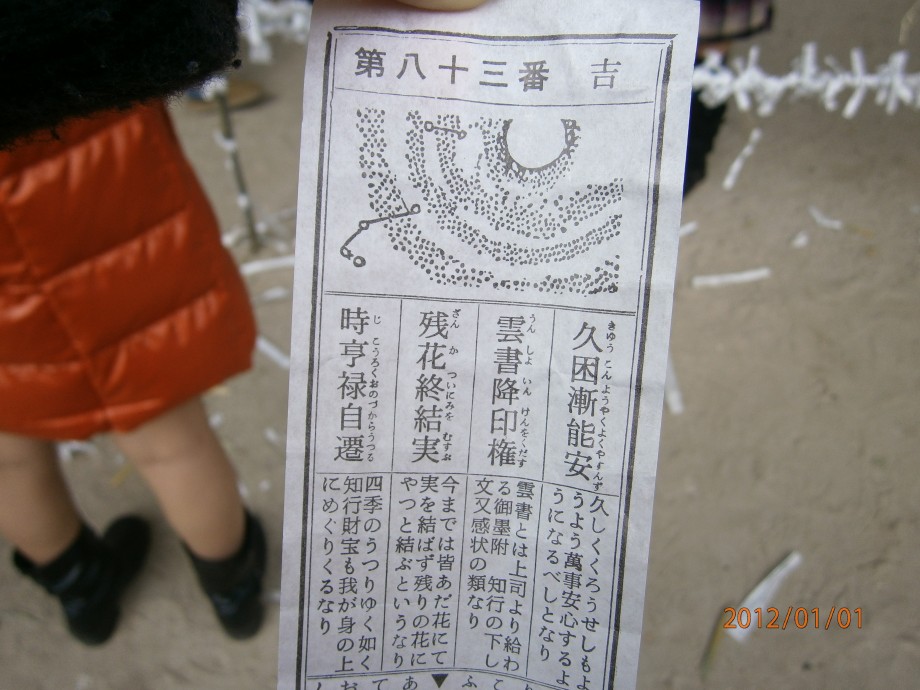 第八十三番 吉
久困漸能安
きゆうこんようやくよくやすんず
久しくくろうせしもよ
うよう萬事安心するよ
うになるべしとなり
雲書降印権
うんしよいんけんをくだす
雲書とは上司より給わ
る御墨附 知行の下し
文又感状の類なり
残花終結実
ざんかついにみをむすお
今までは皆あだ花にて
実を結ばず残りの花に
やつと結ぶというなり
時亨禄自遷
じこうろくおのづからうつる
四季のうつりゆく如く
知行財宝も我が身の上
にめぐりくるなり
2012/01/01